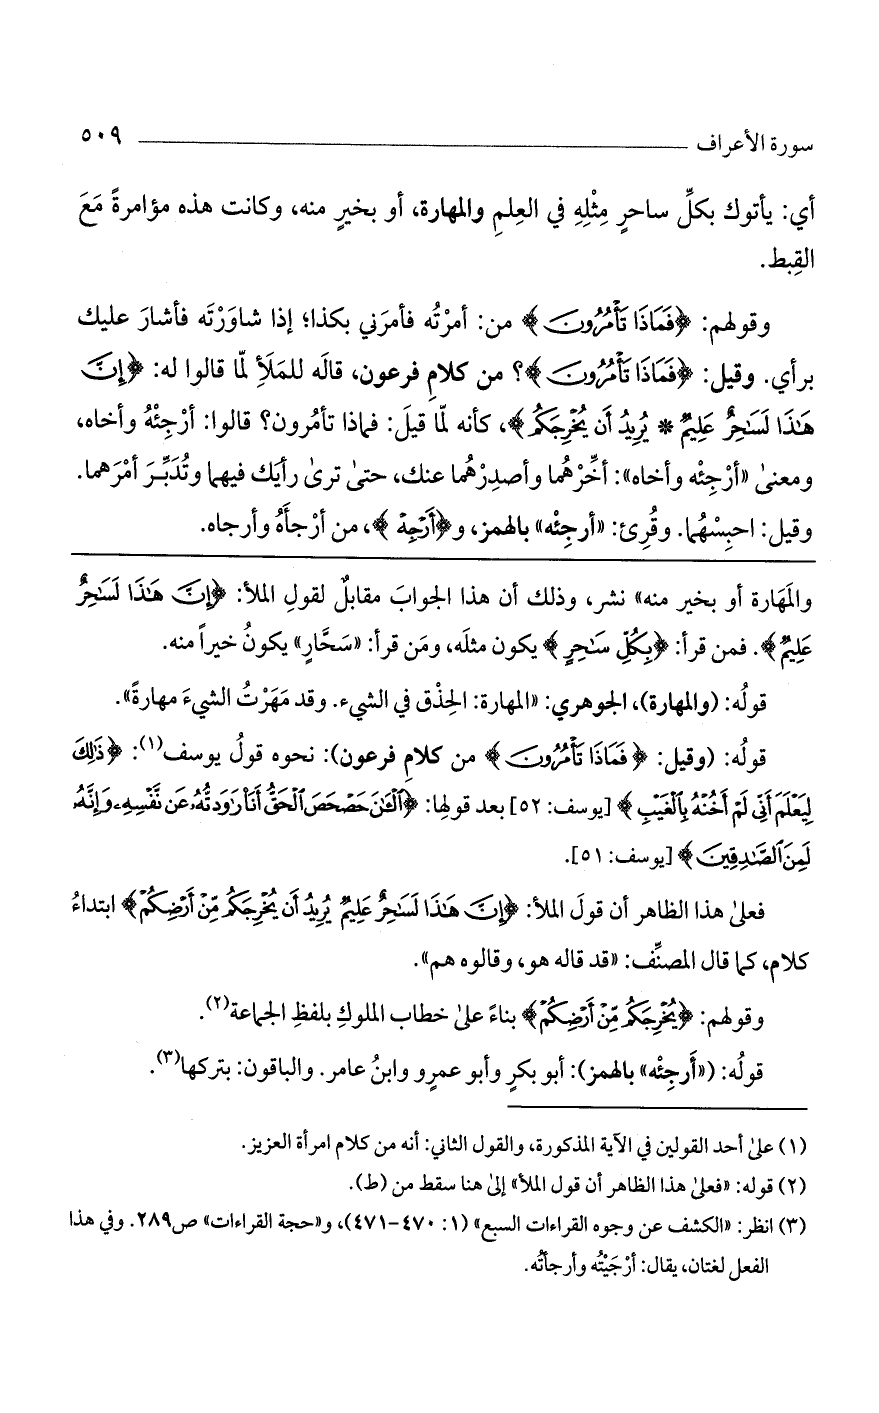 سورة الأعراف ٥٠٩
أي: يأتوك بكلِّ ساحرٍ مِثْلِهِ في العِلمِ والمهارة، أو بخيرٍ منه، وكانت هذه مؤامرةً مَعَ
القِبط.
وقولهم: ﴿فَمَاذَا تَأْمُرُونَ﴾ من: أمرْتُه فأمرَني بكذا؛ إذا شاوَرْتَه فأشارَ عليك
برأي. وقيل: ﴿فَمَاذَا تَأْمُرُونَ﴾؟ من كلامِ فرعون، قالَه للمَلَأِ لمّا قالوا له: ﴿إِنَّ
هَٰذَا لَسَٰحِرٌ عَلِيمٌ * يُرِيدُ أَن يُخْرِجَكُم﴾، كأنه لمّا قيلَ: فماذا تأمُرون؟ قالوا: أرْجِئْهُ وأخاه،
ومعنىٰ «أرْجِئْه وأخاه»: أخِّرْهُما وأصدِرْهُما عنك، حتىٰ ترىٰ رأيَك فيهما وتُدَبِّرَ أمْرَهما.
وقيل: احبِسْهُما. وقُرِئ: «أرجِئْه» بالهمز، و﴿أَرْجِهْ﴾، من أرْجأَهُ وأرجاه.
والمَهَارة أو بخير منه» نشر، وذلك أن هذا الجوابَ مقابلٌ لقولِ الملأ: ﴿إِنَّ هَٰذَا لَسَٰحِرٌ
عَلِيمٌ﴾. فمن قرأ: ﴿بِكُلِّ سَٰحِرٍ﴾ يكون مثلَه، ومَن قرأ: «سَحَّارٍ» يكونُ خيراً منه.
قولُه: (والمهارة)، الجوهري: «المهارة: الحِذْق في الشيء. وقد مَهَرْتُ الشيءَ مهارةً».
قولُه: (وقيل: ﴿فَمَاذَا تَأْمُرُونَ﴾ من كلامِ فرعون): نحوه قولُ يوسف(١): ﴿ذَٰلِكَ
لِيَعْلَمَ أَنِّي لَمْ أَخُنْهُ بِالْغَيْبِ﴾ [يوسف: ٥٢] بعد قولها: ﴿الْـَٰٔنَ حَصْحَصَ الْحَقُّ أَنَا۠ رَٰوَدتُّهُۥ عَن نَّفْسِهِۦ وَإِنَّهُۥ
لَمِنَ الصَّٰدِقِينَ﴾ [يوسف: ٥١].
فعلىٰ هذا الظاهر أن قولَ الملأ: ﴿إِنَّ هَٰذَا لَسَٰحِرٌ عَلِيمٌ يُرِيدُ أَن يُخْرِجَكُم مِّنْ أَرْضِكُمْ﴾ ابتداءُ
كلام، كما قال المصنِّف: «قد قاله هو، وقالوه هم».
وقولهم: ﴿يُخْرِجَكُم مِّنْ أَرْضِكُمْ﴾ بناءً علىٰ خطاب الملوكِ بلفظِ الجماعة(٢).
قولُه: («أَرجِئْه» بالهمز): أبو بكرٍ وأبو عمرٍو وابنُ عامر. والباقون: بتركها(٣).
(١) علىٰ أحد القولين في الآية المذكورة، والقول الثاني: أنه من كلام امرأة العزيز.
(٢) قوله: «فعلىٰ هذا الظاهر أن قول الملأ» إلىٰ هنا سقط من (ط).
(٣) انظر: «الكشف عن وجوه القراءات السبع» (١: ٤٧٠-٤٧١)، و«حجة القراءات» ص٢٨٩. وفي هذا
الفعل لغتان، يقال: أرْجَيْتُه وأرجأتُه.